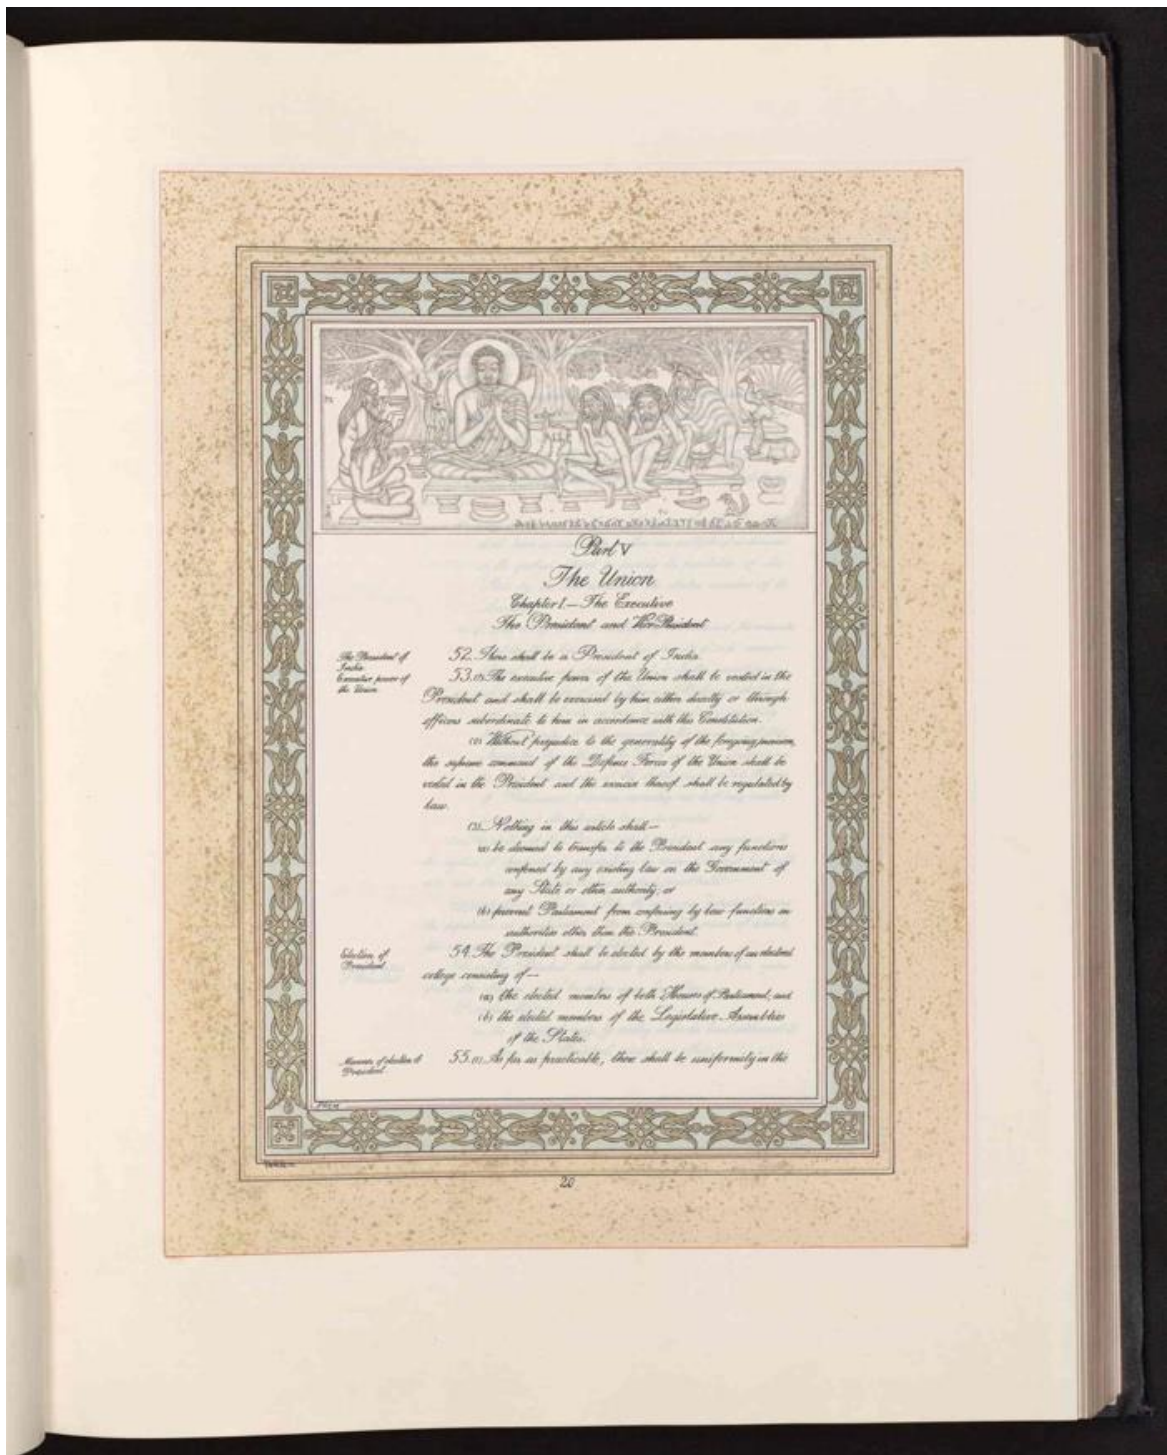 Part V
The Union
Chapter I.—The Executive
The President and Vice-President
The President of
India.
52. There shall be a President of India.
Executive power of
the Union.
53.(1) The executive power of the Union shall be vested in the
President and shall be exercised by him either directly or through
officers subordinate to him in accordance with this Constitution.
(2) Without prejudice to the generality of the foregoing provision,
the supreme command of the Defence Forces of the Union shall be
vested in the President and the exercise thereof shall be regulated by
law.
(3) Nothing in this article shall—
(a) be deemed to transfer to the President any functions
conferred by any existing law on the Government of
any State or other authority; or
(b) prevent Parliament from conferring by law functions on
authorities other than the President.
Election of
President.
54. The President shall be elected by the members of an electoral
college consisting of—
(a) the elected members of both Houses of Parliament; and
(b) the elected members of the Legislative Assemblies
of the States.
Manner of election of
President.
55.(1) As far as practicable, there shall be uniformity in the
20